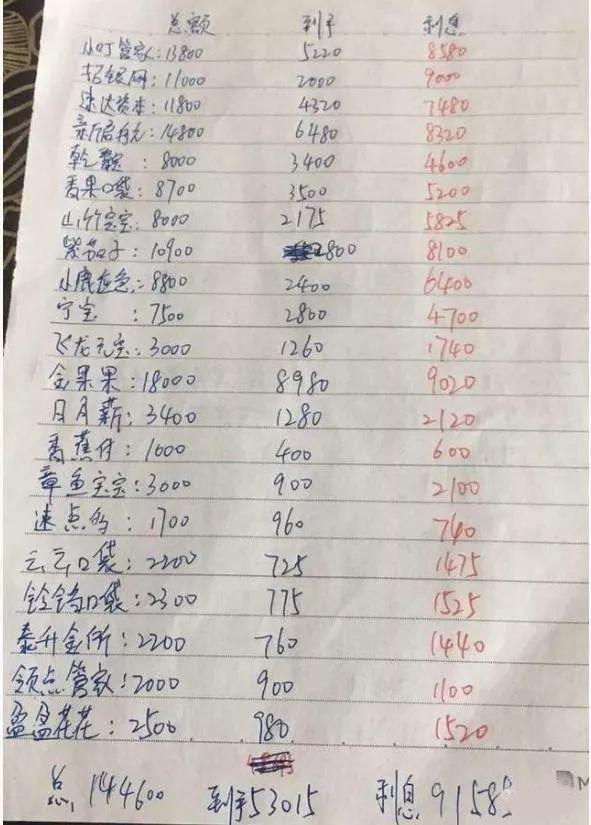 总额 到手 利息
小叮管家:13800 5220 8580
拓银网:11000 2000 9000
速达资本:11800 4320 7480
14800 6480 8320
乾 :8000 3400 4600
番果口袋:8700 3500 5200
山竹宝宝:8000 2175 5825
紫茄子:10900 2800 8100
小鹿应急:8800 2400 6400
宁宝:7500 2800 4700
飞龙元宝:3000 1260 1740
金果果:18000 8980 9020
日月薪:3400 1280 2120
香蕉付:1000 400 600
章鱼宝宝:3000 900 2100
速点 :1700 960 740
云云口袋:2200 725 1475
铃铛口袋:2300 775 1525
泰升金所:2200 760 1440
领点管家:2000 900 1100
盈盈花花:2500 980 1520
总 144600 到手53015 利息9158